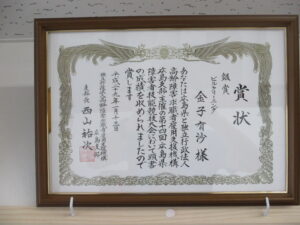 賞状
銀賞
ビルクリーニング
金子有沙様
あなたは広島県と独立行政法人
高齢障害求職者雇用支援機構
広島支部主催の第十四回広島県
障害者技能競技大会において頭書
の成績を収められましたので
賞します
平成二十九年一月十三日
支部長 西山裕次